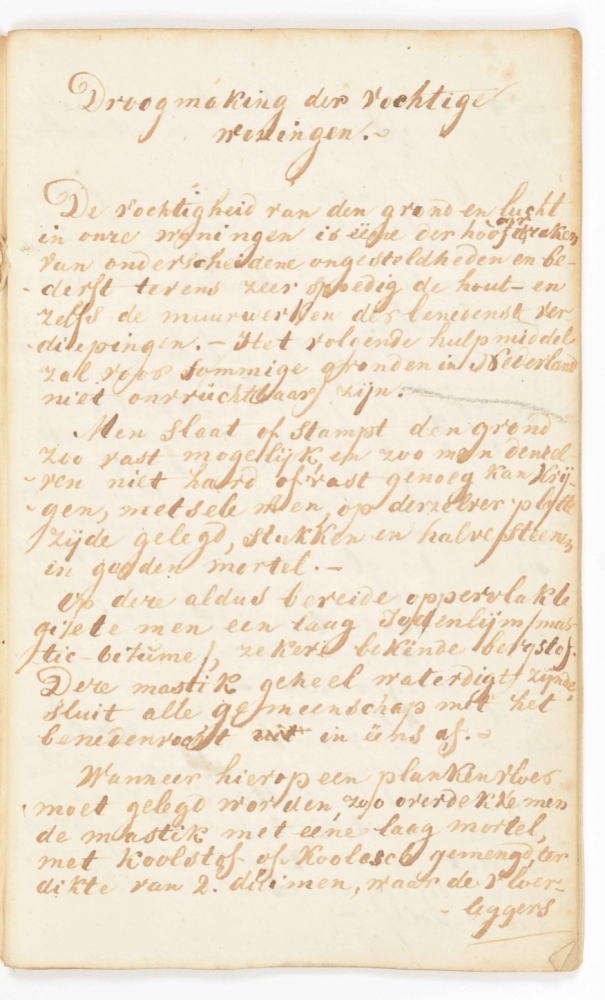 Droogmáking der vochtige
woningen.~
De vochtigheid van den grond en lucht
in onze woningen is ééne der hoofdoorzaken
van onderscheidene ongesteldheden en be-
derft tevens zeer spoedig de hout- en
zelfs de muurwerken der benedenste ver
diepingen. — Het volgende hulpmiddel
zal voor sommige gronden in Nederland
niet onvruchtbaar zijn.
Men slaat of stampt den grond
zoo vast mogelijk, en zoo men denzel-
ven niet hard of vast genoeg kan krij-
gen, metsele men, op derzelver platte
zijde gelegd, stukken en halve steenen,
in goeden mortel. —
Op deze aldus bereide oppervlakte
giete men een laag Jodenlijm /mas-
tic-bitume/, zekere bekende bergstof.
Deze mastik geheel waterdigt zijnde
sluit alle gemeenschap met het
benedenvocht in ééns af. ~
Wanneer hierop een planken vloer
moet gelegd worden, zoo overdekke men
de mastik met eene laag mortel,
met koolstof of koolasch gemengd, ter
dikte van 2. duimen, waar de vloer-
leggers